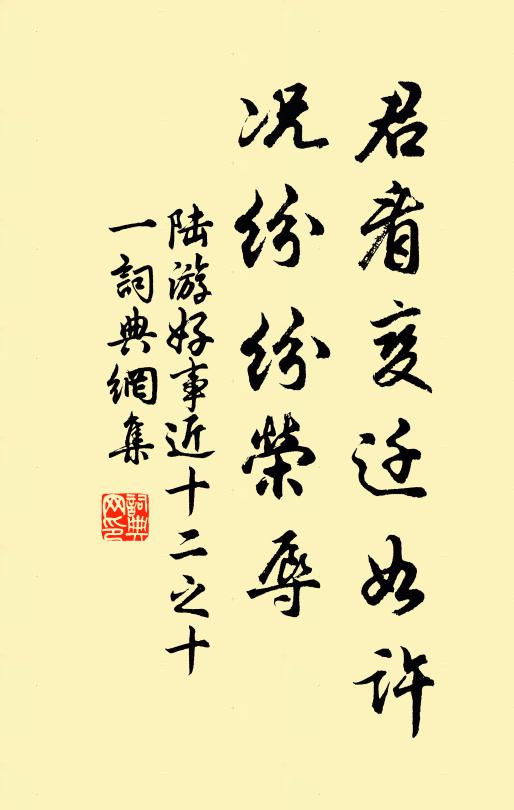 君看变迁如许
况纷纷荣辱
陆游好事近十二之十
一词典网集
词典网印